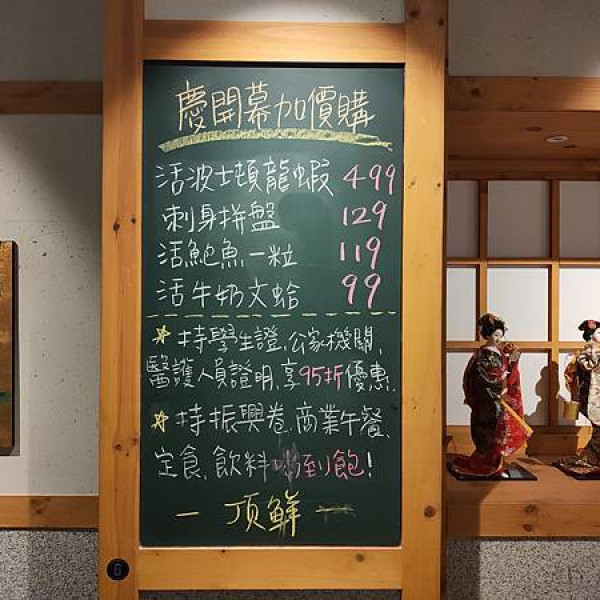 慶開幕加價購
活波士頓龍蝦 499
刺身拼盤 129
活鮑魚一粒 119
活牛奶文蛤 99
☆持學生證.公家機關,
醫護人員證明,享95折優惠.
☆持振興卷.商業午餐.
定食.飲料喝到飽!
一頂鮮一